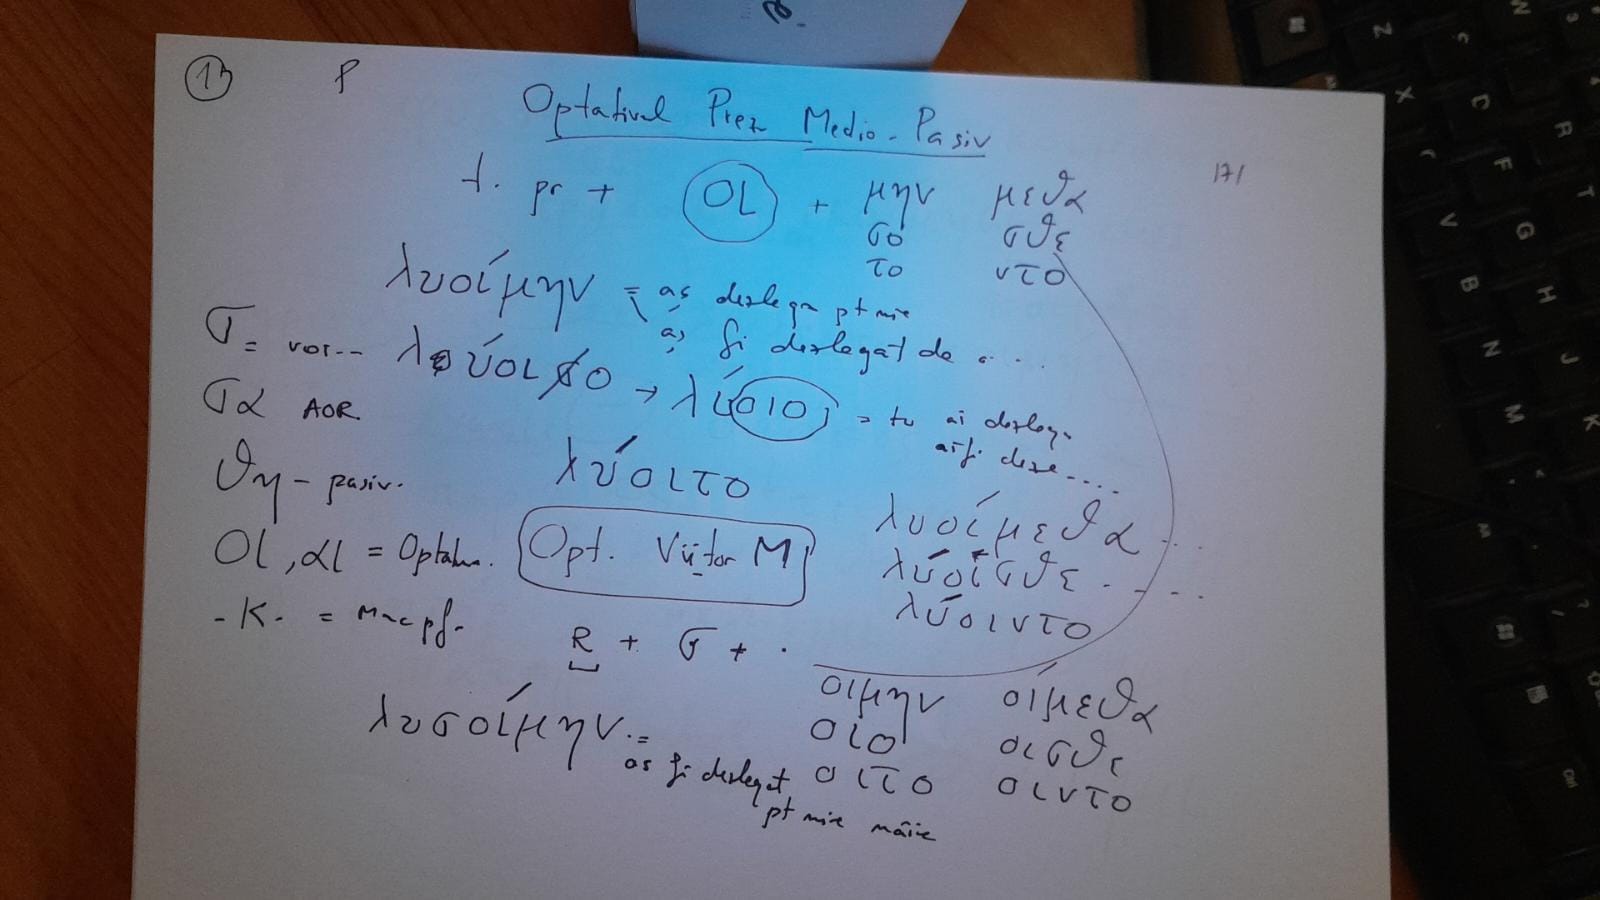 13 P
Optativul Prez Medio-Pasiv
171
t. pr + ΟΙ + μην μεθα
σο σθε
το ντο
λυοίμην = aș dezlega pt mine
aș fi dezlegat de ....
σ = vor...
λύοισο → λύοιο = tu ai dezlega
ai fi deze....
σα AOR.
θη - pasiv.
λύοιτο
λυοίμεθα ...
ΟΙ, αι = Optativ.
Opt. Viitor M
λύοίσθε ....
λύοιντο
-Κ- =
R + σ + .
οιμην οίμεθα
οιο οισθε
οιτο οιντο
λυσοίμην. =
as fi dezlegat
pt mine mâine